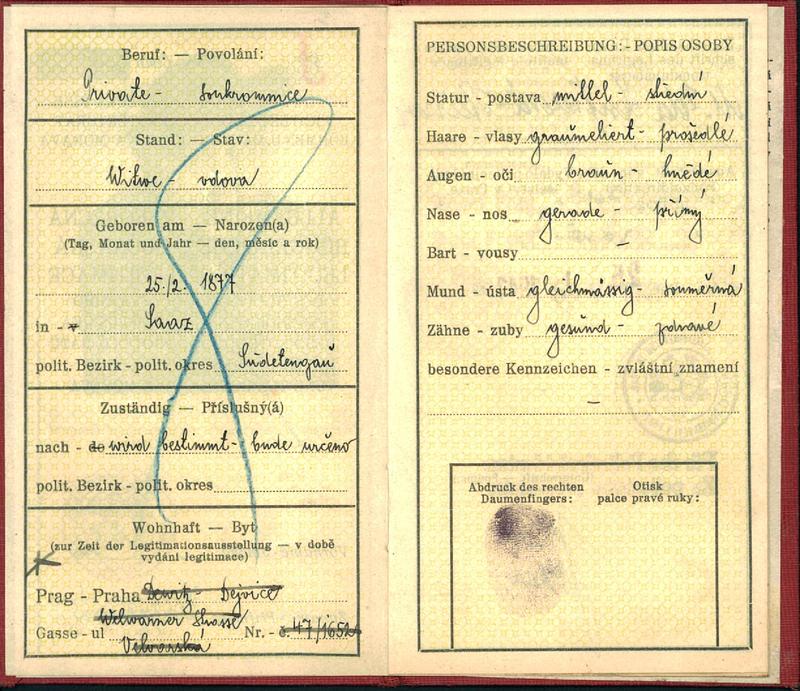 Beruf: — Povolání:
Private - soukromnice
Stand: — Stav:
Witwe - vdova
Geboren am — Narozen(a)
(Tag, Monat und Jahr — den, měsíc a rok)
25./2. 1877
in - v Saaz
polit. Bezirk - polit. okres Sudetengau
Zuständig — Příslušný(á)
nach - do wird bestimmt - bude určeno
polit. Bezirk - polit. okres
Wohnhaft — Byt
(zur Zeit der Legitimationsausstellung — v době
vydání legitimace)
Prag - Praha Dewitz - Dejvice
Welwarner Strasse
Gasse - ul Nr. - č. 47/1652
Velvarská
PERSONSBESCHREIBUNG: - POPIS OSOBY
Statur - postava mittel - střední
Haare - vlasy graumeliert - prošedlé
Augen - oči braun - hnědé
Nase - nos gerade - přímý
Bart - vousy —
Mund - ústa gleichmässig - souměrná
Zähne - zuby gesund - zdravé
besondere Kennzeichen - zvláštní znamení
—
Abdruck des rechten Daumenfingers:
Otisk palce pravé ruky: